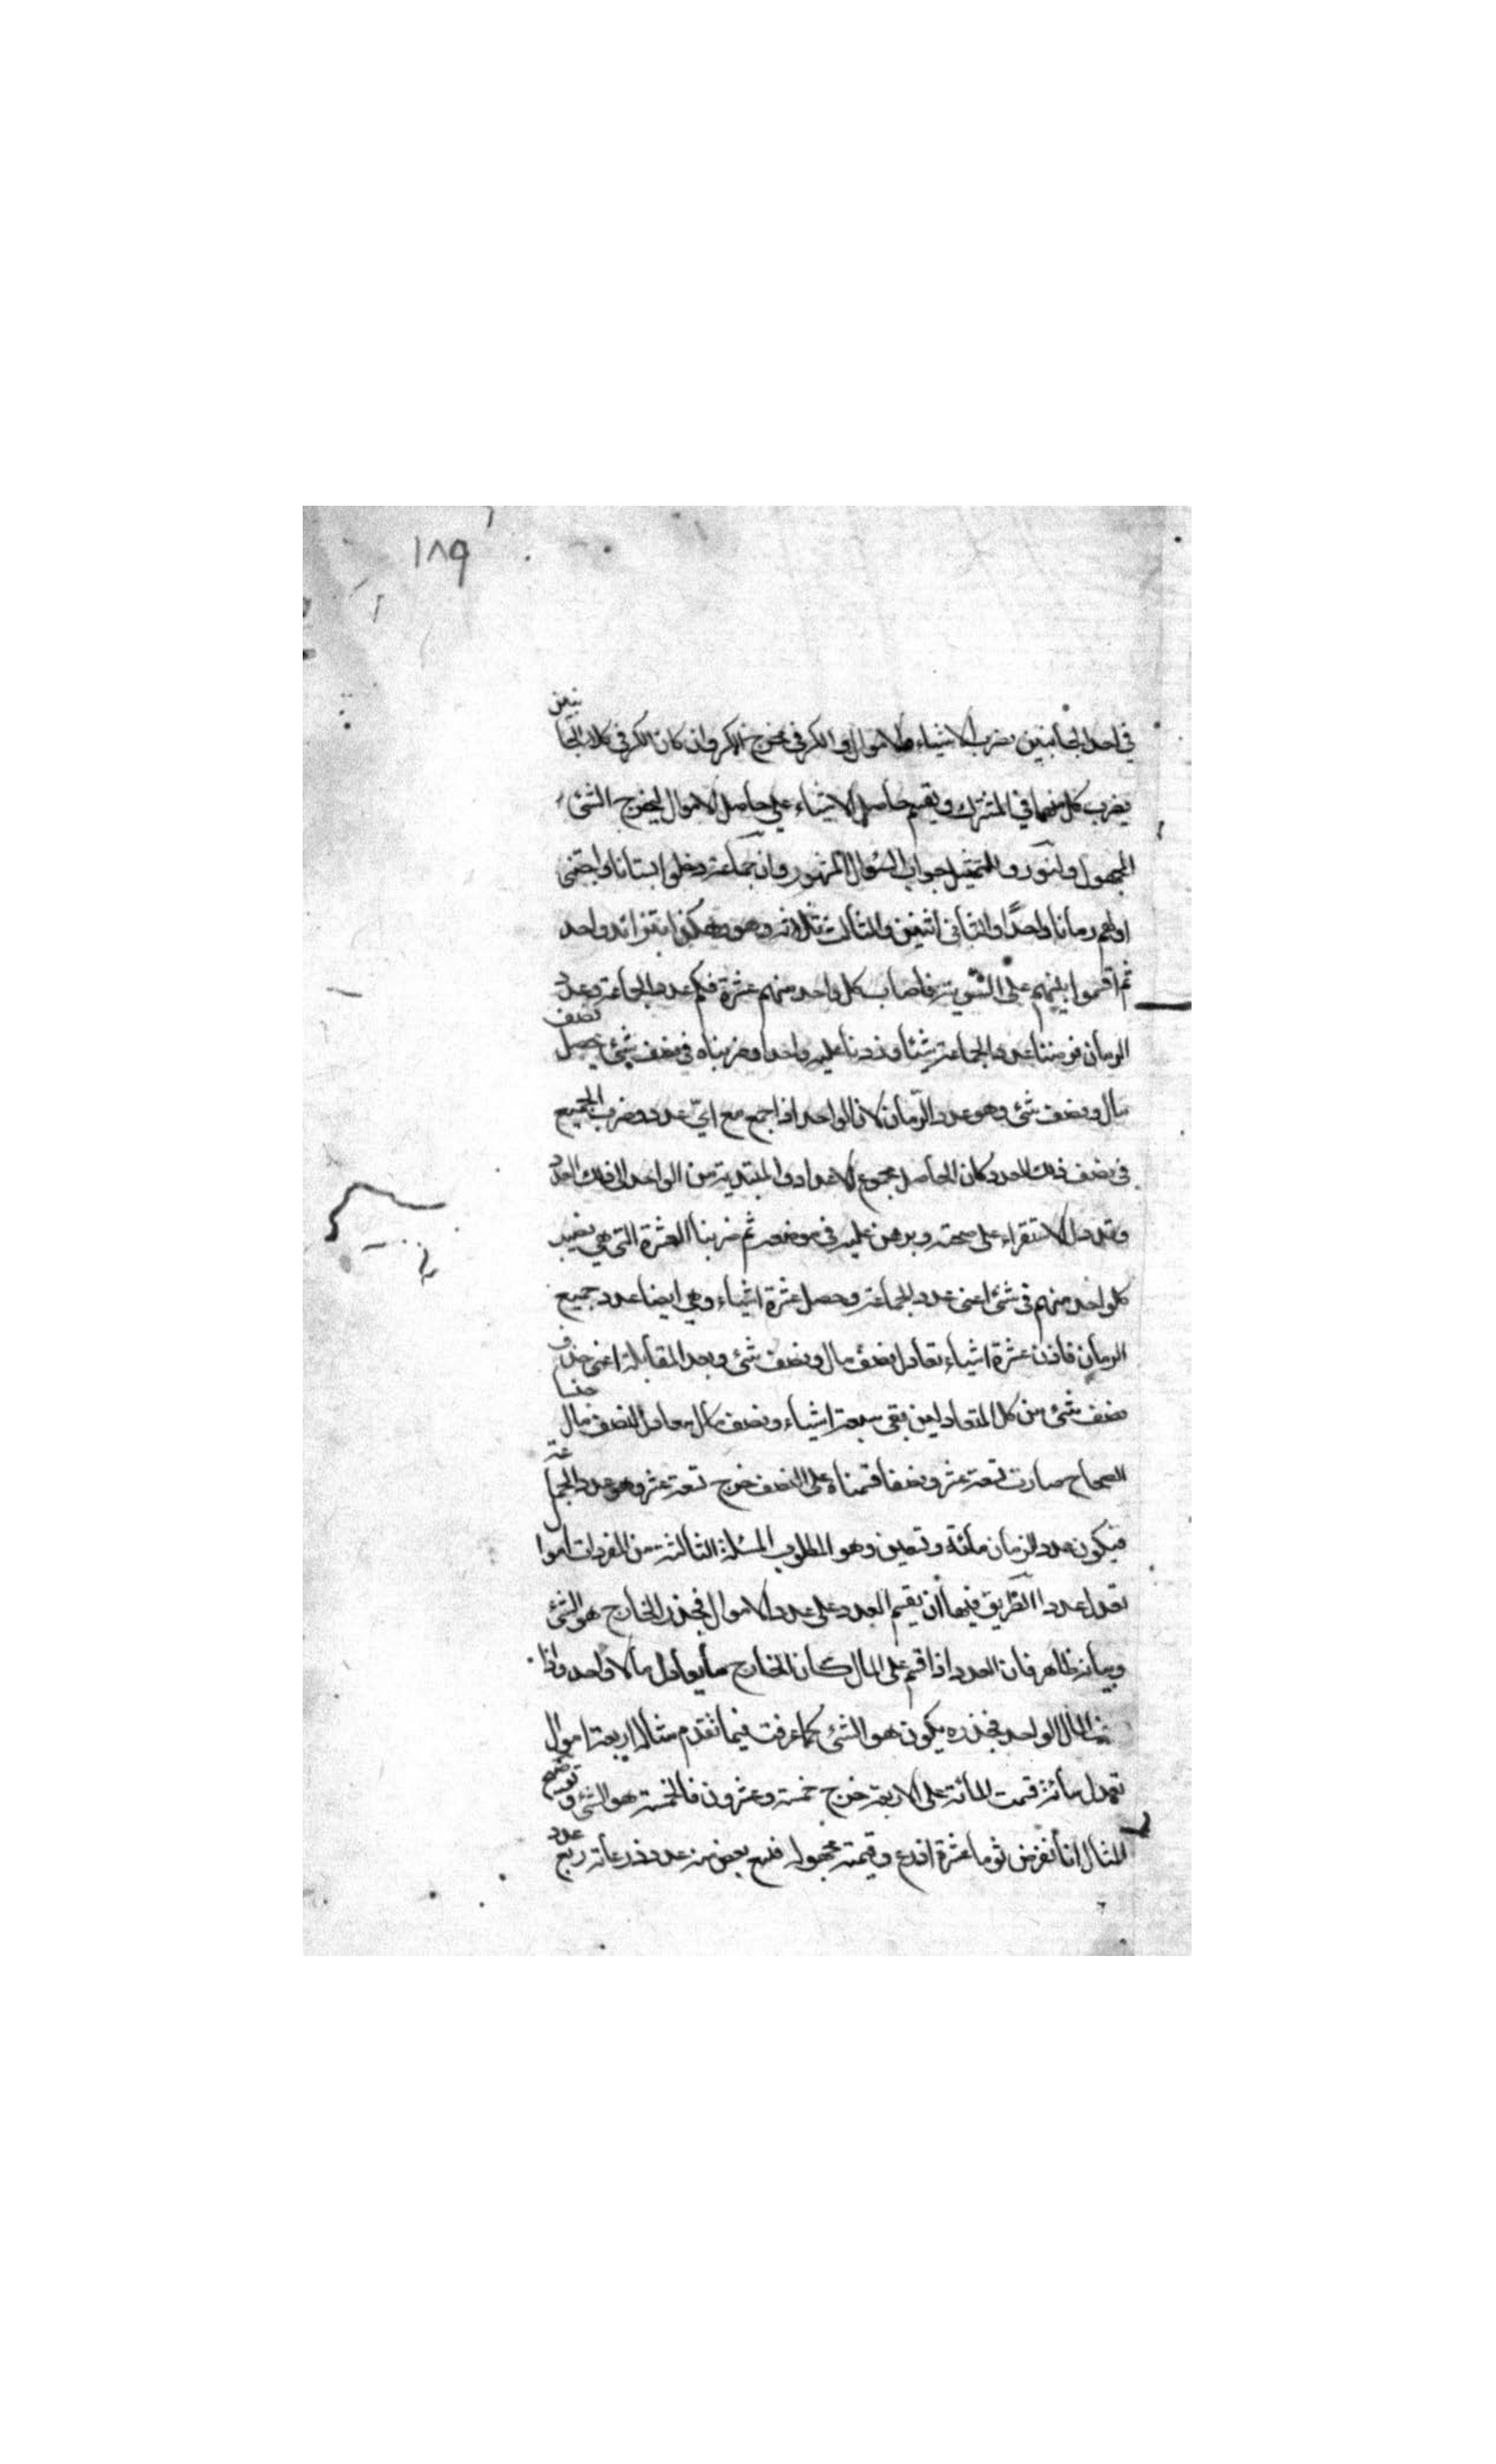 ١٨٩
في احد الجانبين يضرب الاشياء والاموال والكسر في مخرج الكسر وان كان الكسر في كلا الجانبين
يضرب كل منهما في المشترك ويقسم حاصل الاشياء على حاصل الاموال ليخرج الشئ
المجهول ولنورد للتمثيل جواب السؤال المشهور وان جماعة دخلوا بستانا واجتنى
اولهم رمانا واحدًا والثاني اثنين والثالث ثلاثة وهكذا بتزائد واحد
ثم اقسموا بينهم على السّوية فاصاب كل واحد منهم عشرة فكم عدد الجماعة وعدد
الرمان فرضنا عدد الجماعة شيئا وزدنا عليه واحدا وضربناه في نصف شئ حصل نصف
مال ونصف شئ وهو عدد الرّمان لان الواحد اذا جمع مع ايّ عدد وضرب الجميع
في نصف ذلك العدد كان الحاصل مجموع الاعداد المبتدية من الواحد الى ذلك العدد
وقد دل الاستقراء على صحته وبرهن عليه في موضعه ثم ضربنا العشرة التي هي نصيب
كل واحد منهم في شئ اعنى عدد الجماعة وحصل عشرة اشياء وهي ايضا عدد جميع
الرمان فاذن عشرة اشياء تعادل نصف مال ونصف شئ وبعد المقابلة اعنى حذف
نصف شئ من كل المتعادلين بقى تسعة اشياء ونصف معادلا لنصف مال
الصحاح صارت تسعة عشر ونصفا قسمناه على النصف خرج تسعة عشر وهو عدد الجماعة
فيكون عدد الرمان مائة وتسعين وهو المطلوب المسئلة الثالثة من المفردات اموال
تعدل عددا الطريق فيها ان يقسم العدد على عدد الاموال فجذر الخارج هو الشئ
وبيانه ظاهر فان العدد اذا قسم على المال كان الخارج ما يعادل مالا واحد واذا
المال الواحد فجذره يكون هو الشئ كما عرفت فيما تقدم مثاله اربعة اموال
تعدل مائة قسمت المائة على الاربعة خرج خمسة وعشرون فالخمسة هو الشئ وتوضيح
المثال انا نفرض ثوبا عشرة اذرع وقيمته مجهولة فبيع بعض من عدد ذرعانه ربع عدد